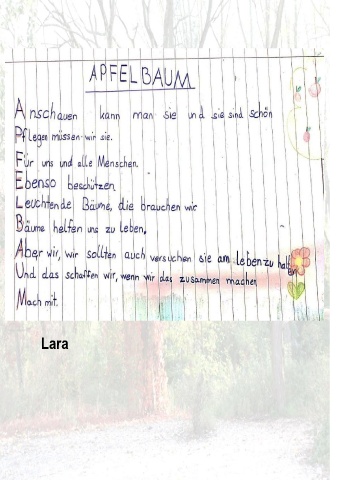 APFELBAUM
Anschauen kann man sie und sie sind schön
Pflegen müssen wir sie.
Für uns und alle Menschen.
Ebenso beschützen
Leuchtende Bäume, die brauchen wir
Bäume helfen uns zu leben,
Aber wir, wir sollten auch versuchen sie am leben zu halten
Und das schaffen wir, wenn wir das zusammen machen
Mach mit.
Lara